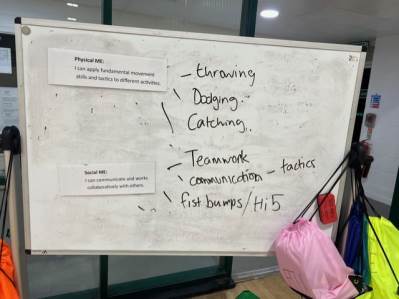 Physical ME:
I can apply fundamental movement
skills and tactics to different activities.
– throwing
Dodging.
Catching.
Social ME:
I can communicate and work
collaboratively with others.
– Teamwork
communication – tactics
fist bumps/Hi5